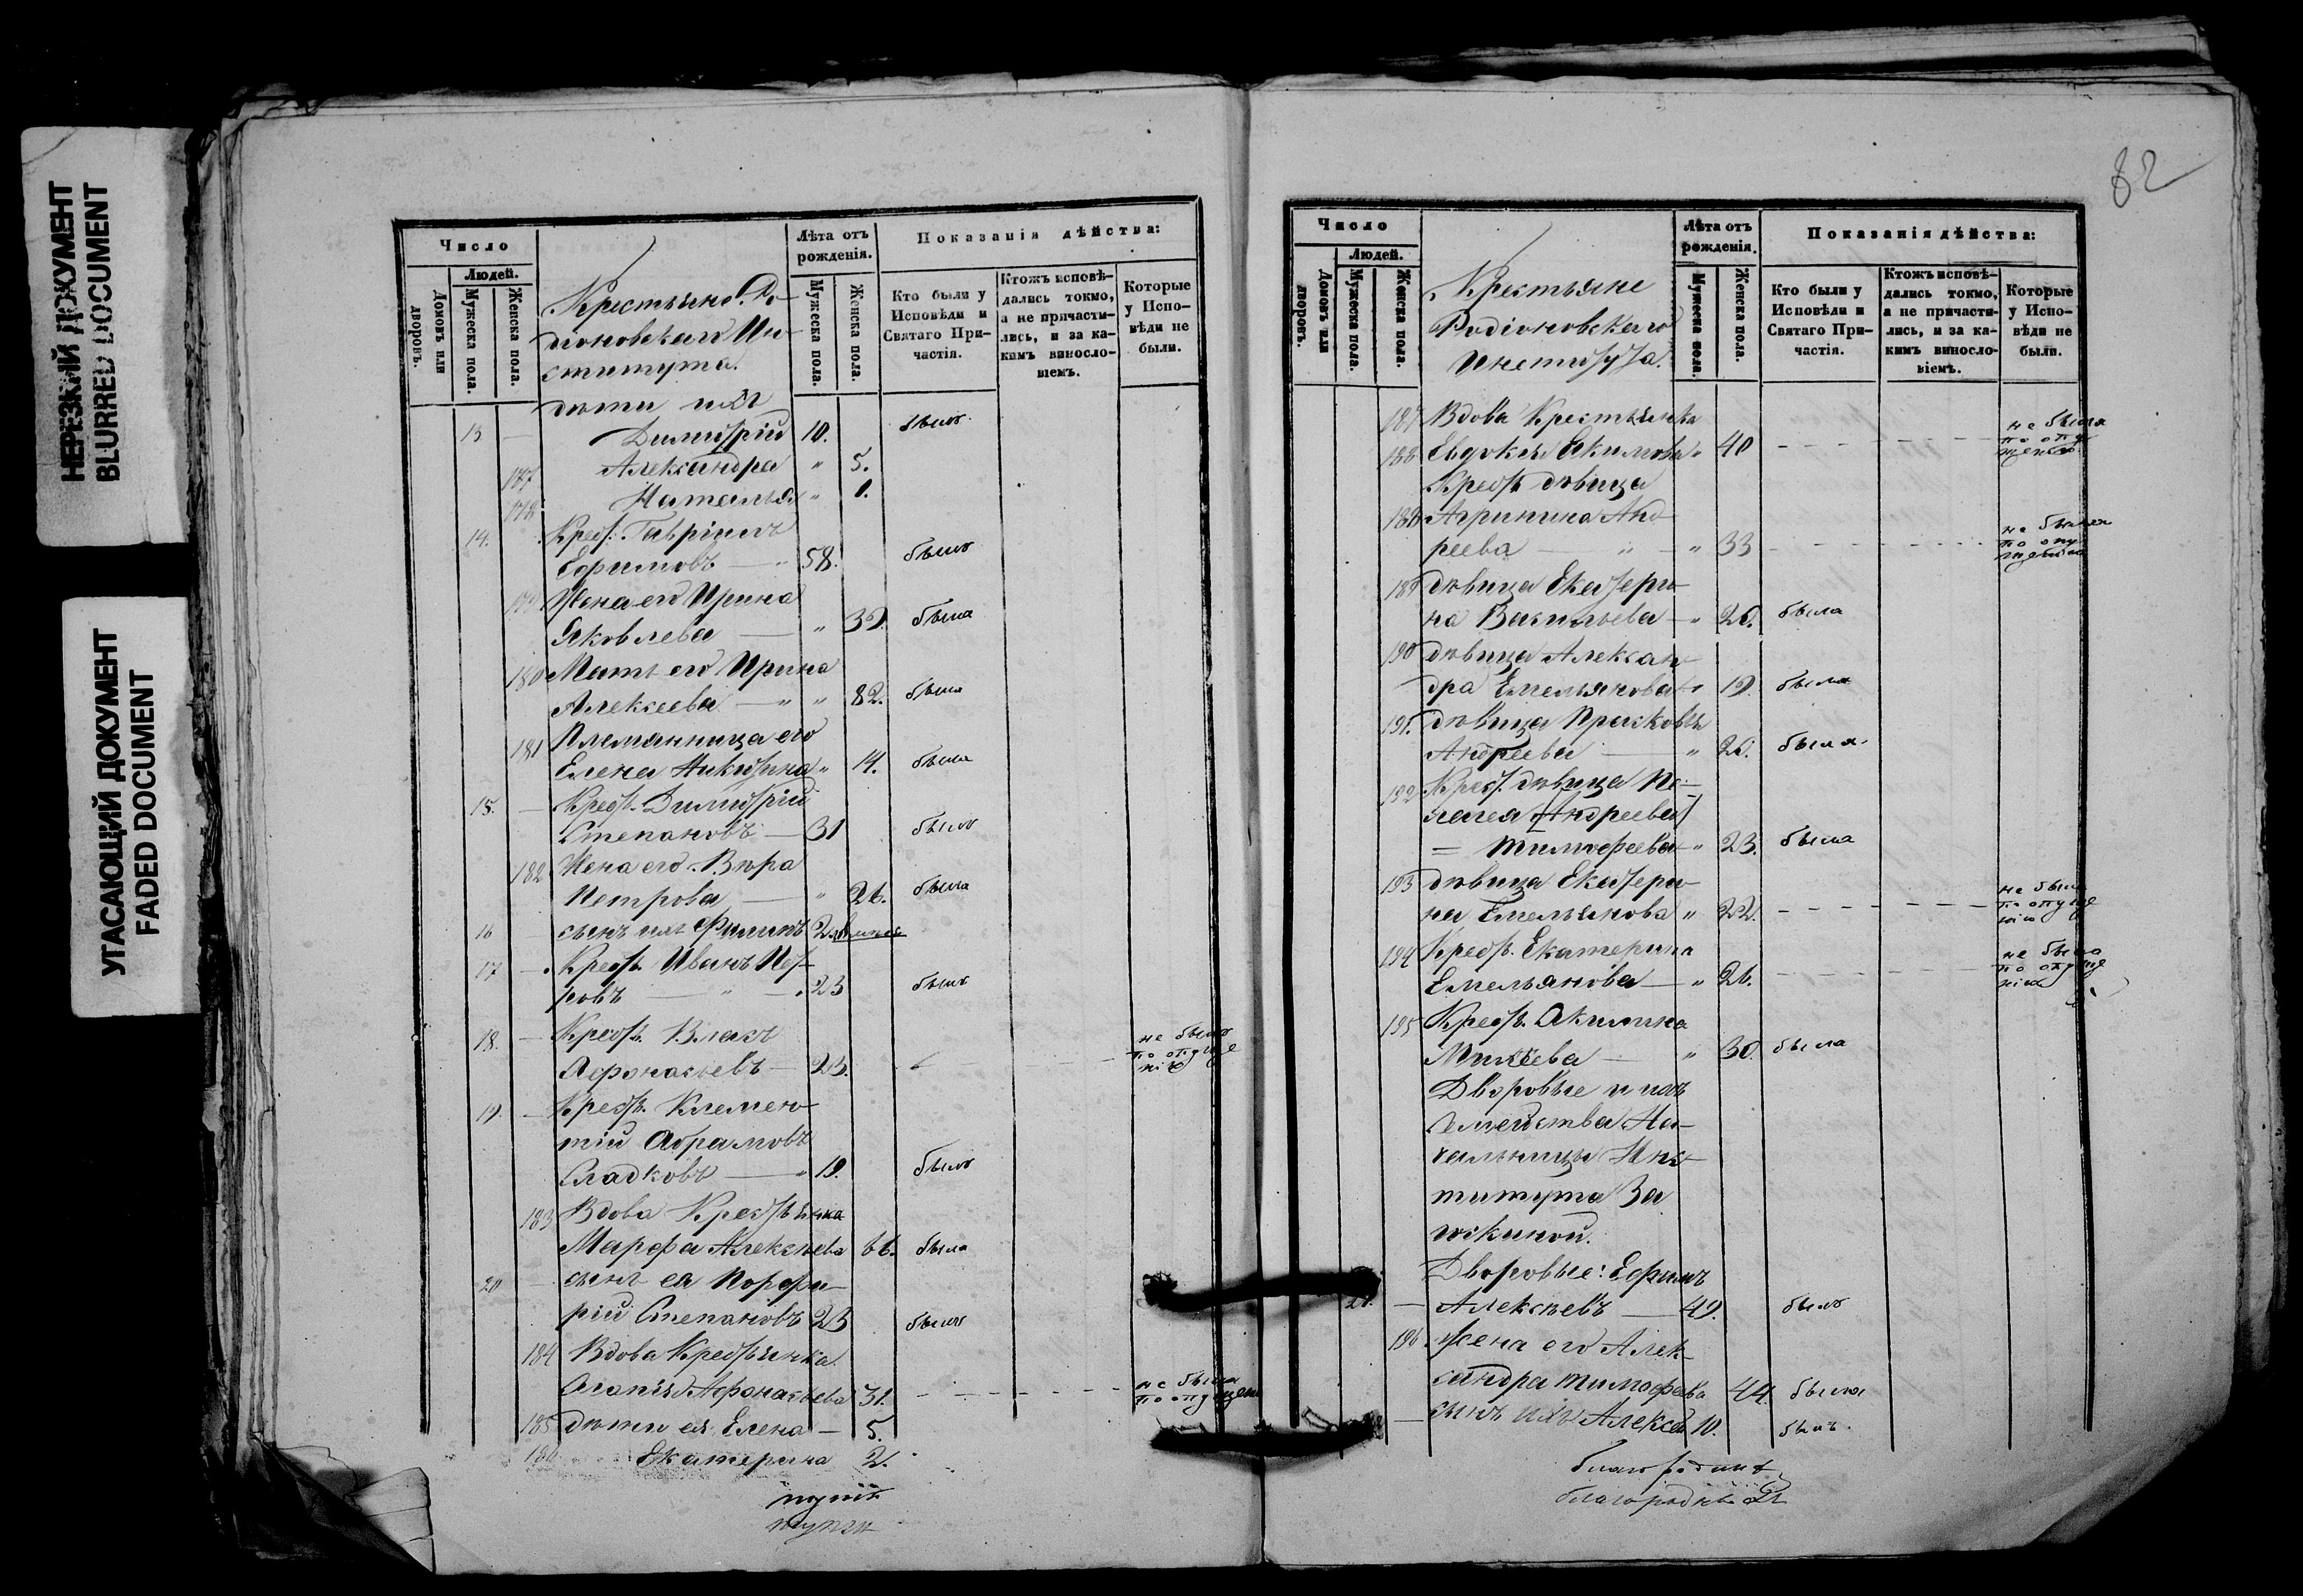 НЕРЕЗКИЙ ДОКУМЕНТ
BLURRED DOCUMENT
УГАСАЮЩИЙ ДОКУМЕНТ
FADED DOCUMENT
Число
Людей.
Домовъ или дворовъ.
Мужеска пола.
Женска пола.
Крестьяне Ро-
діоновскаго Ин-
ститута.
Лѣта отъ рожденія.
Мужеска пола.
Женска пола.
Показанія дѣйства:
Кто были у Исповѣди и Святаго При-частія.
Ктожъ исповѣ-дались токмо, а не причасти-лись, и за ка-кимъ винosло-віемъ.
Которые у Испо-вѣди не были.
дѣти ихъ
13 — Димитрій 10. былъ
177 Александра " 5.
178 Наталья " 1.
14. Крест. Гавріилъ
Ефимовъ — " 58. былъ
179 Жена его Ирина
Яковлева — " 39. была
180 Мать его Ирина
Алексеева — " " 82. была
181 Племянница его
Елена Никитина " 14. была
15. — Крест. Димитрій
Степановъ — 31 былъ
182 Жена его Вѣра
Петрова — " 26. была
16 сынъ ихъ Филипъ 2.
17 — Крест. Иванъ Пет-
ровъ — " — " 23 былъ
18. — Крест. Власъ
Афонасьевъ — 23. не былъ по опуще нію
19. — Крест. Климен-
тій Абрамовъ
Сладковъ — " 19. былъ
183 Вдова Крестьянка
Марфа Алексѣева 66. была
20 — сынъ ея Порфи-
рій Степановъ 23 былъ
184 Вдова Крестьянка
Агапія Афонасьева 31. не была по опущен
185 дѣти ея Елена — 5.
186 Екатерина 2.
82
Число
Людей.
Домовъ или дворовъ.
Мужеска пола.
Женска пола.
Крестьяне
Родіоновскаго
Института.
Лѣта отъ рожденія.
Мужеска пола.
Женска пола.
Показанія дѣйства:
Кто были у Исповѣди и Святаго При-частія.
Ктожъ исповѣ-дались токмо, а не причасти-лись, и за ка-кимъ виносло-віемъ.
Которые у Испо-вѣди не были.
187 Вдова Крестьянка
188 Евдокія Акимова " 40 не была по опу щенію
Крест. дѣвица
188 Агрипина Анд-
реева — " — " 33 не была по опу щенію
189 дѣвица Екатери-
на Васильева — " 26. была
190 дѣвица Алексан-
дра Емельянова " 19. была
191. дѣвица Прасковья
Андреева " 26. была
192 Крест. дѣвица Пе-
лагея (Андреева)
= Тимофеева " 23. была
193 дѣвица Екатери-
на Емельянова " 22. не была по опуще нію
194 Крест. Екатерина
Емельянова — " 26. не была по опуще нію
195 Крест. Акилина
Михеева — " 30. была
Дворовые и ихъ
семейства На-
чальницы Инс-
титута За
Дворовые: Ефимъ
21. — Алексѣевъ — 49. былъ
196 Жена его Алек-
сандра Тимофеева 44. была
— сынъ ихъ Алексей 10. былъ